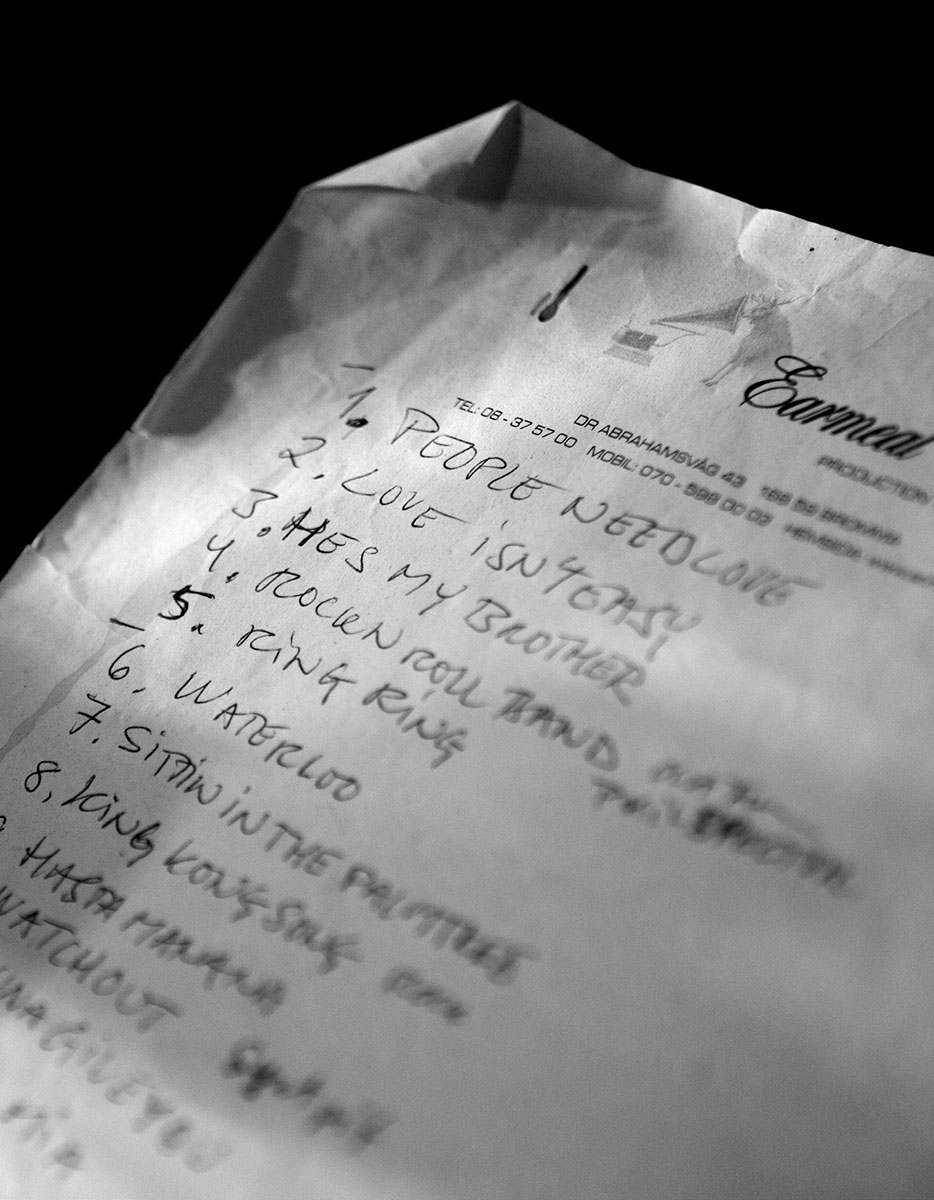 Earmeal
PRODUCTION
DR ABRAHAMSVÄG 43 168 59 BROMMA
TEL: 08 - 37 57 00 MOBIL: 070 - 598 00 03 HEMSIDA:
1. PEOPLE NEED LOVE
2. LOVE iSN'T EASY
3. HES MY BROTHER
4. ROCKN ROLL BAND
5. RiNG RiNG
6. WATERLOO
7. SiTTiN iN THE PALMTREE
8. KiNG KONG SONG
HASTA MANANA
WATCHOUT
GIVE YOU